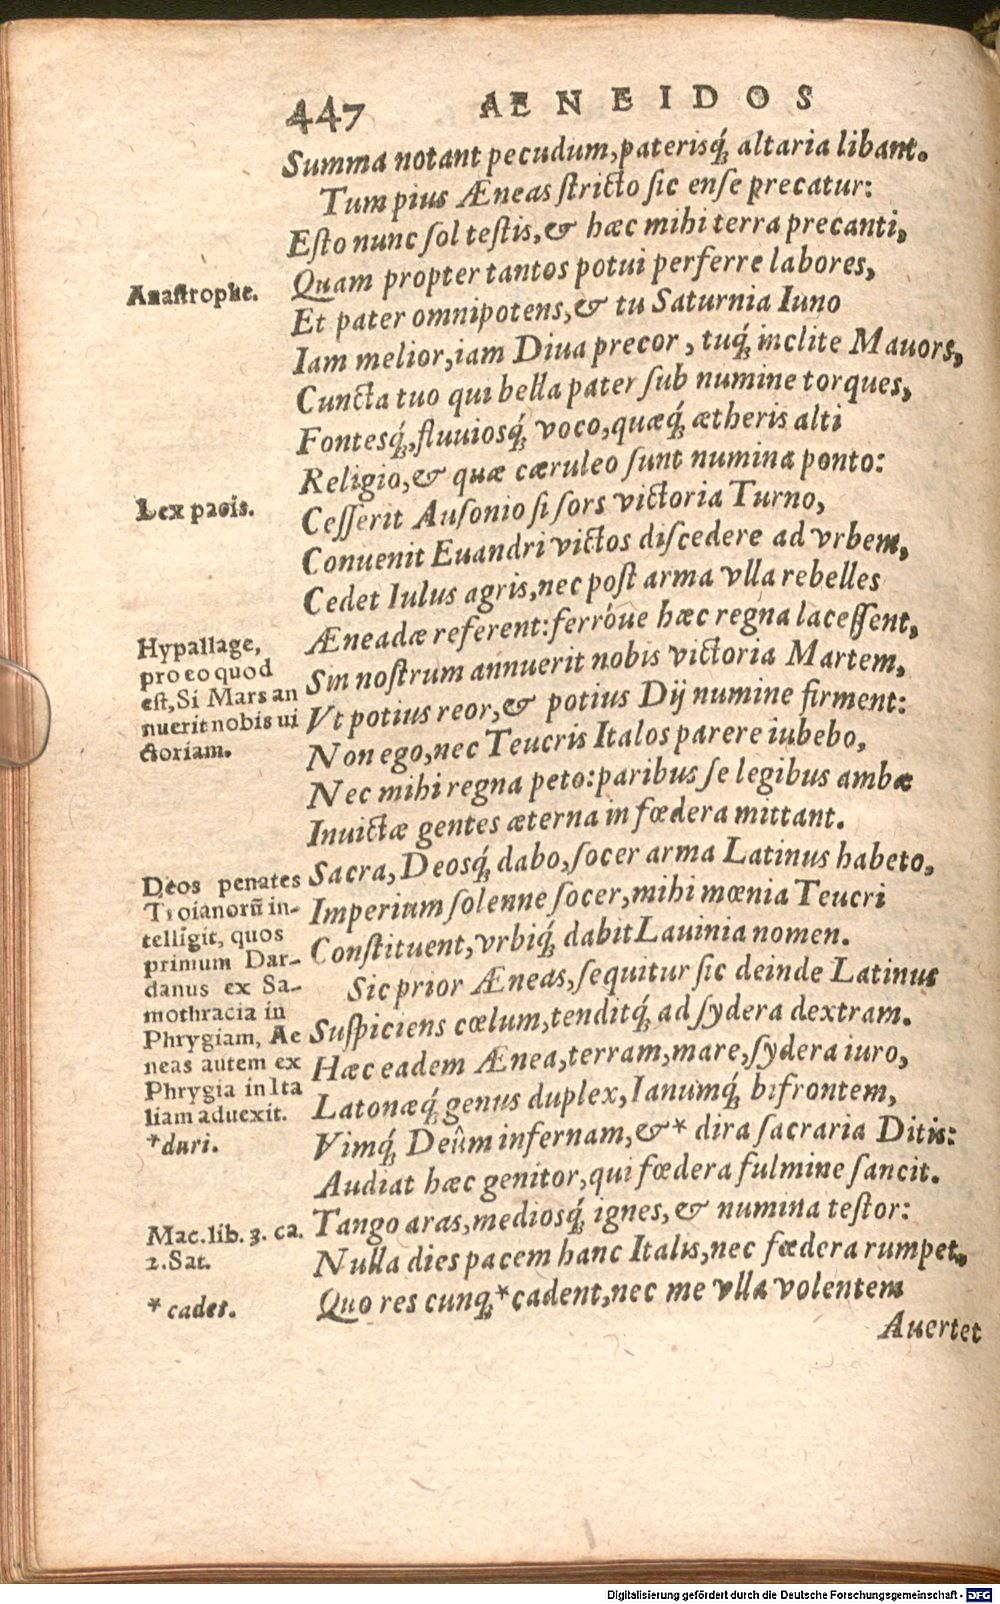 447 AENEIDOS
Summa notant pecudum,paterisq́; altaria libant.
Tum pius Æneas ſtricto ſic enſe precatur:
Eſto nunc ſol teſtis,& hæc mihi terra precanti,
Anaſtrophe.
Quam propter tantos potui perferre labores,
Et pater omnipotens,& tu Saturnia Iuno
Iam melior,iam Diua precor , tuq́; inclite Mauors,
Cuncta tuo qui bella pater ſub numine torques,
Fontesq́;,fluuiosq́; voco,quæq́; ætheris alti
Religio,& quæ cæruleo ſunt numina ponto:
Lex pacis.
Ceſſerit Auſonio ſi ſors victoria Turno,
Conuenit Euandri victos diſcedere ad vrbem,
Cedet Iulus agris,nec poſt arma vlla rebelles
Æneadæ referent:ferróue hæc regna laceſſent,
Hypallage,
pro eo quod
eſt,Si Mars an
nuerit nobis ui
ctoriam.
Sin noſtrum annuerit nobis victoria Martem,
Vt potius reor,& potius Dij numine firment:
Non ego,nec Teucris Italos parere iubebo,
Nec mihi regna peto:paribus ſe legibus ambæ
Inuictæ gentes æterna in fœdera mittant.
Sacra,Deosq́; dabo,ſocer arma Latinus habeto,
Deos penates
Troianorū in-
telligit, quos
primum Dar-
danus ex Sa-
mothracia in
Phrygiam, Ae
neas autem ex
Phrygia in Ita
liam aduexit.
Imperium ſolenne ſocer,mihi mœnia Teucri
Conſtituent,vrbiq́; dabit Lauinia nomen.
Sic prior Æneas,ſequitur ſic deinde Latinus
Suſpiciens cœlum,tenditq́; ad ſydera dextram.
Hæc eadem Ænea,terram,mare,ſydera iuro,
Latonæq́; genus duplex,Ianumq́; bifrontem,
*duri.
Vimq́; Deûm infernam,&* dira ſacraria Ditis:
Audiat hæc genitor,qui fœdera fulmine ſancit.
Mac.lib.3. ca.
2.Sat.
Tango aras,mediosq́; ignes,& numina teſtor:
Nulla dies pacem hanc Italis,nec fœdera rumpet,
*cadet.
Quo res cunq;*cadent,nec me vlla volentem
Auertet
Digitalisierung gefördert durch die Deutsche Forschungsgemeinschaft - DFG